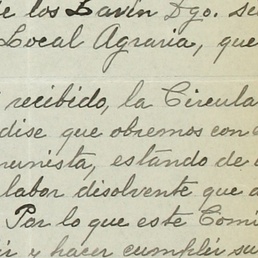 de los Lavín Dgo. se
Local Agraria, que
recibido, la Circula
dise que obremos con
munista, estando de
labor disolvente que
Por lo que este Comi
ir y hacer cumplir su